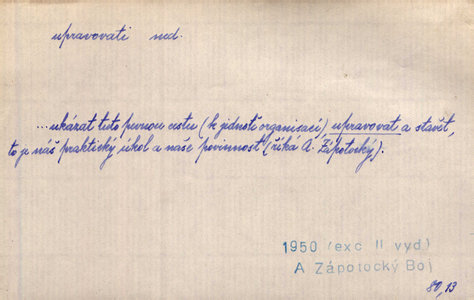 upravovati ned.
...ukázat tuto pevnou cestu (k jednotě organisací) upravovat a stavět,
to je náš praktický úkol a naše povinnost (říká A. Zápotocký).
1950 (exc II vyd)
A Zápotocký Boj
80,13